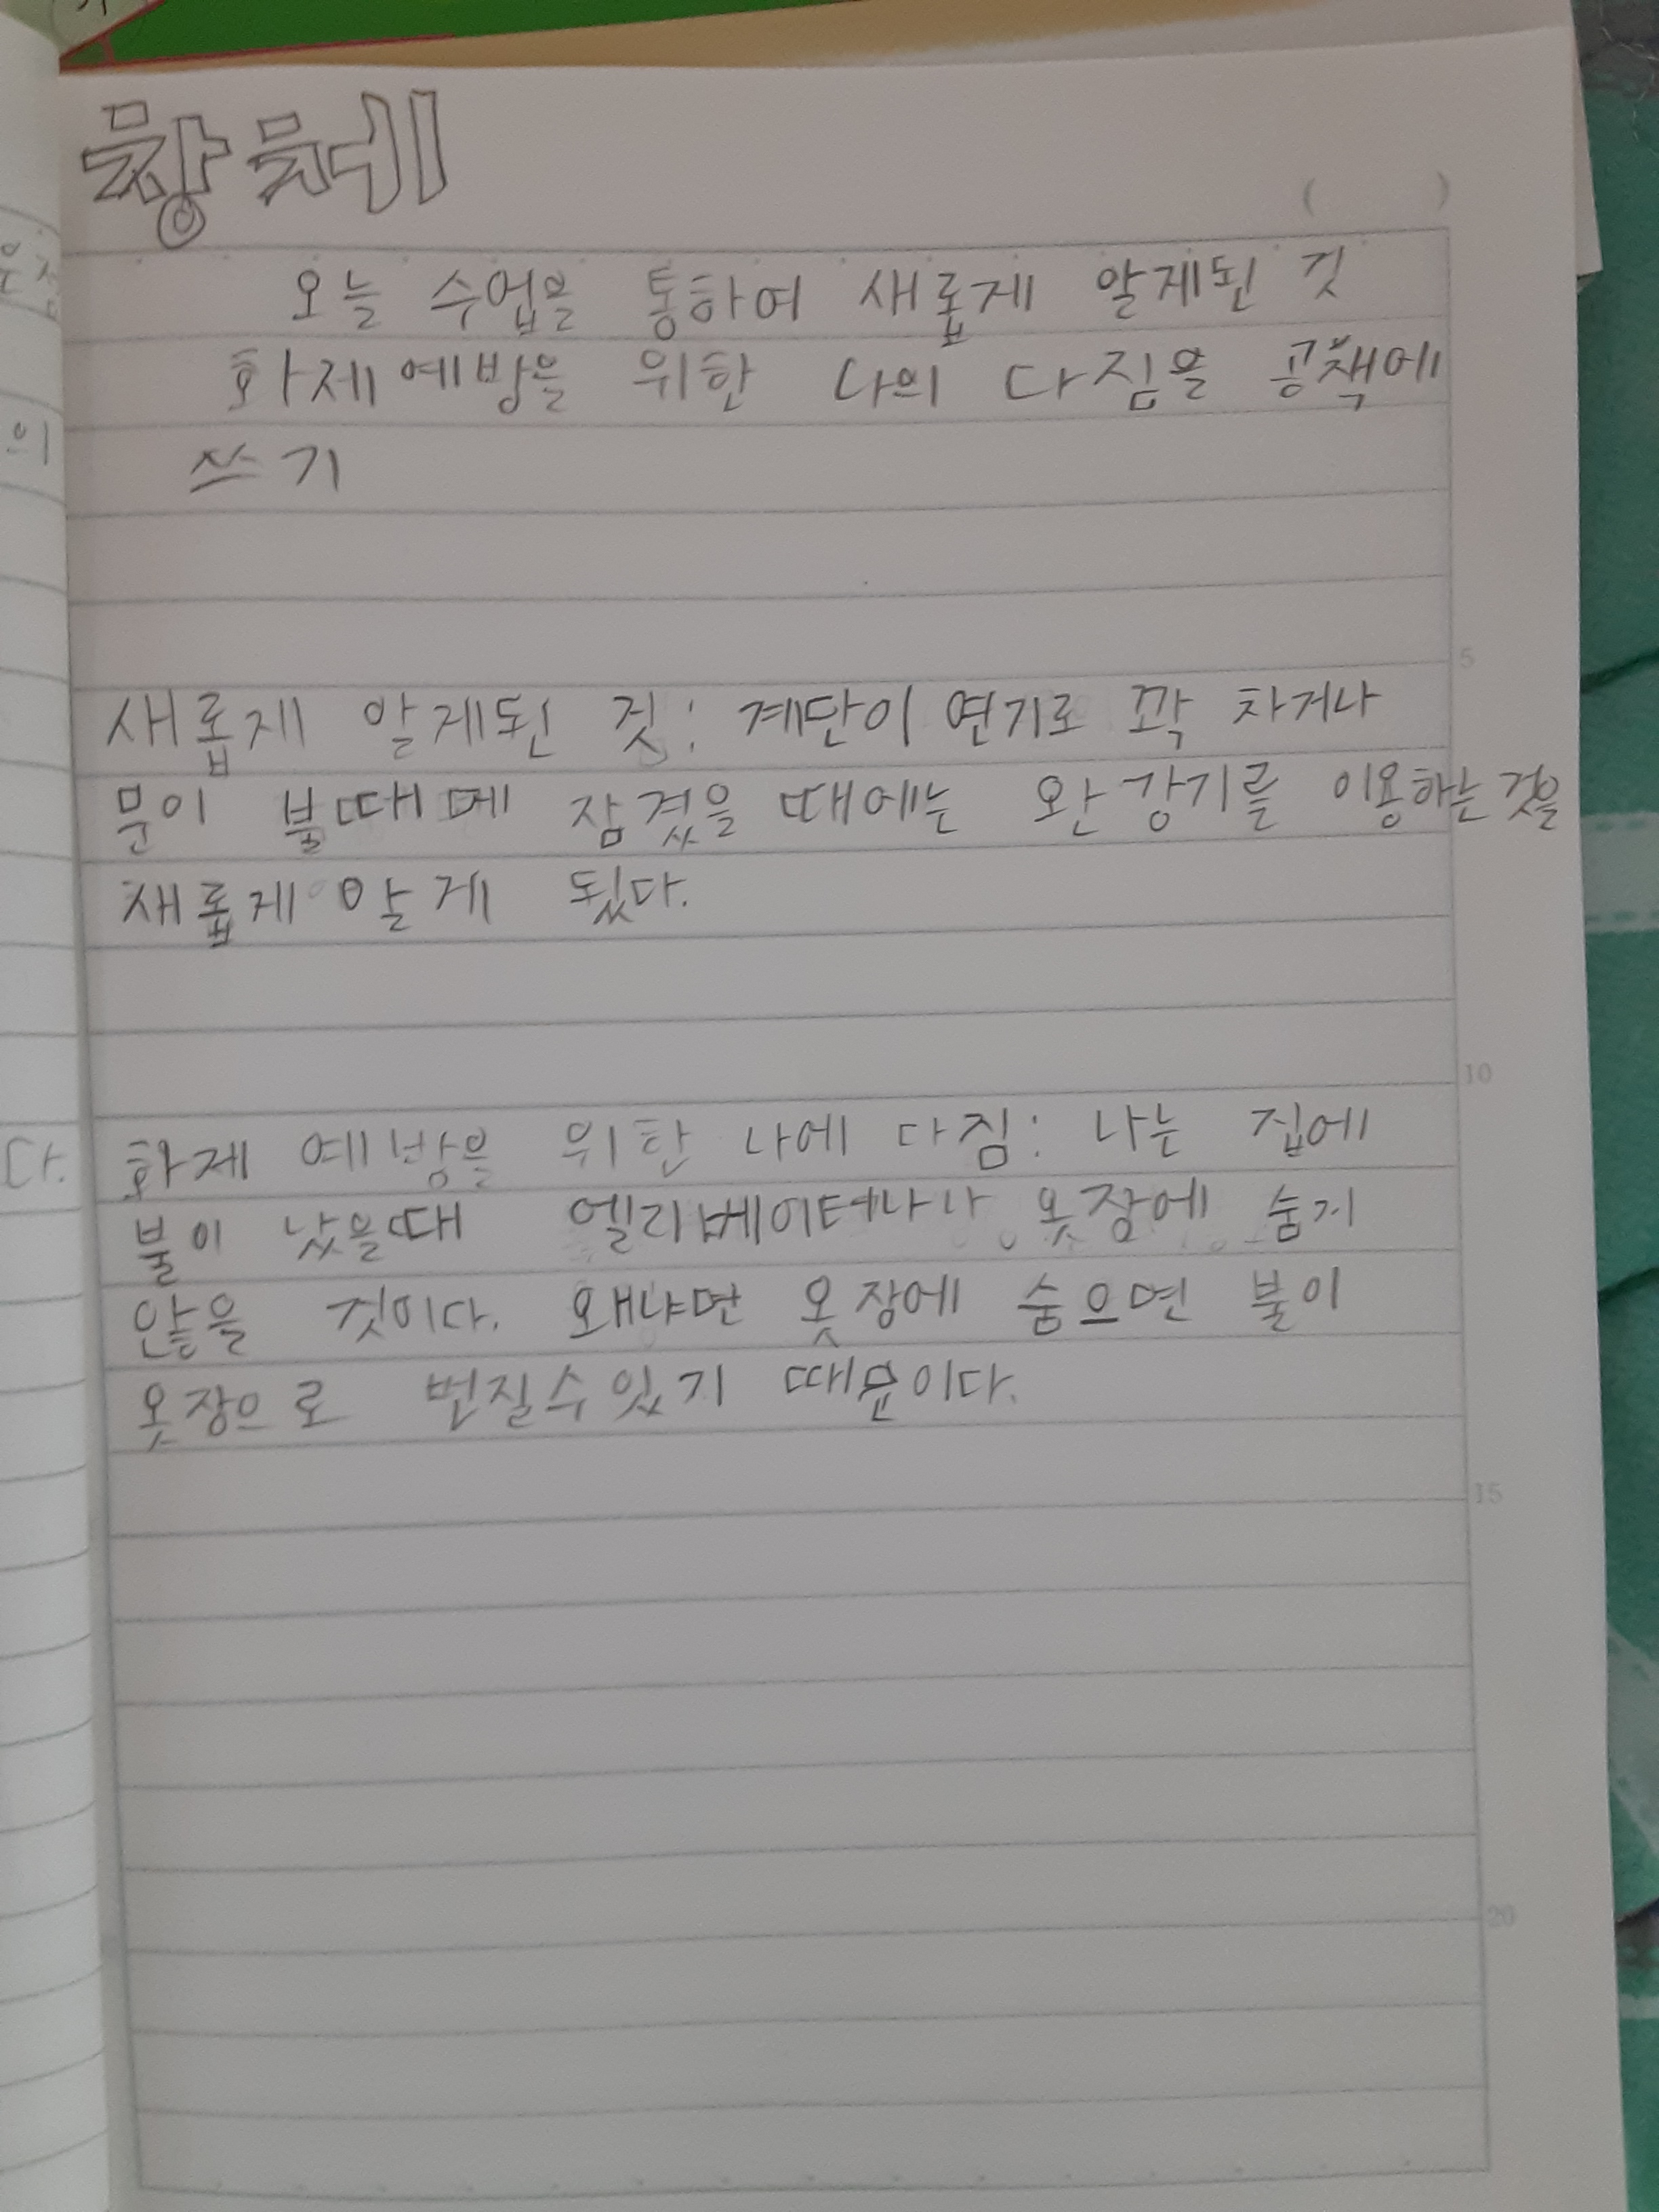 창체
오늘 수업을 통하여 새롭게 알게된 것
화제예방을 위한 나의 다짐을 공책에
쓰기
5
새롭게 알게된 것: 계단이 연기로 꽉 차거나
문이 불때메 잠겼을 때에는 완강기를 이용하는것을
새롭게 알게 됬다.
10
화제 예방을 위한 나에 다짐: 나는 집에
불이 났을때 엘리베이터나나 옷장에 숨지
않을 것이다. 왜냐면 옷장에 숨으면 불이
옷장으로 번질수있기 때문이다.
15
20
의
다.